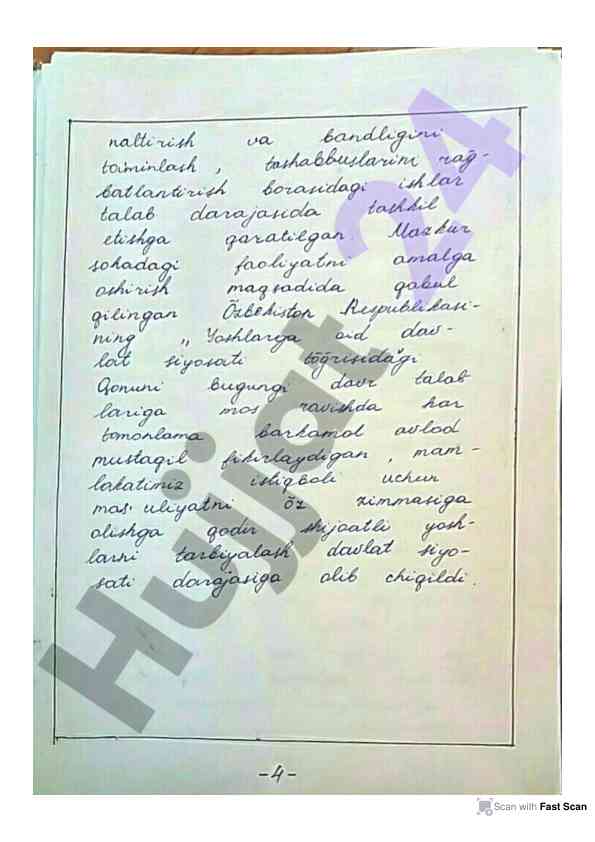 naltirish va bandligini
ta'minlash, tashabbuslarini rağ-
batlantirish borasidagi ishlar
talab darajasida tashkil
etishga qaratilgan. Mazkur
sohadagi faoliyatni amalga
oshirish maqsadida qabul
qilingan Özbekiston Respublikasi-
ning „Yoshlarga oid dav-
lat siyosati töğrisida"gi
Qonuni bugungi davr talab
lariga mos ravishda har
tomonlama barkamol avlod
mustaqil fikirlaydigan, mam-
lakatimiz istiqboli uchun
mas'uliyatni öz zimmasiga
olishga qodir shijoatli yosh-
larni tarbiyalash davlat siyo-
sati darajasiga olib chiqildi.
-4-
Hujjat 24
Scan with Fast Scan